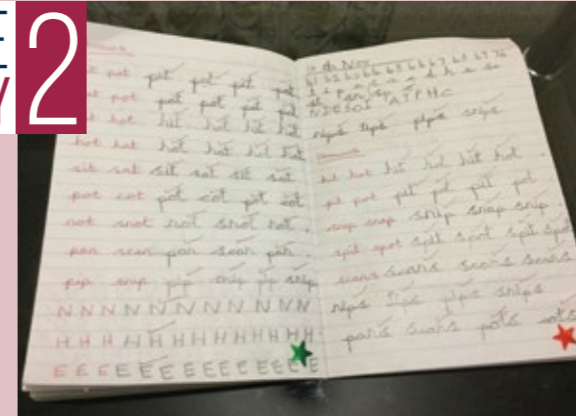 E
Y2
pit pot pit pot pit pot
pit pot pit pot pit pot
hit hot hit hot hit hot
hit hot hit hot hit hot
sit sat sit sat sit sat
pot cot pot cot pot cot
not snot not snot not.
pan scan pan scan pan.
pip snip pip snip pip snip
N N N N N N N N N N N
H H H H H H H H H H H H
E E E E E E E E E E E E
th Nov
61 62 63 64 65 66 67 68 69 70
NDESOI ATPHC
nips tips pips snips
hit hot hit hot hit hot.
pit pot pit pot pit pot
snip snap snip snap snip.
spit spot spit spot spit spot
scans scans scans scans
nips tips pips snips
pans scans pots cots